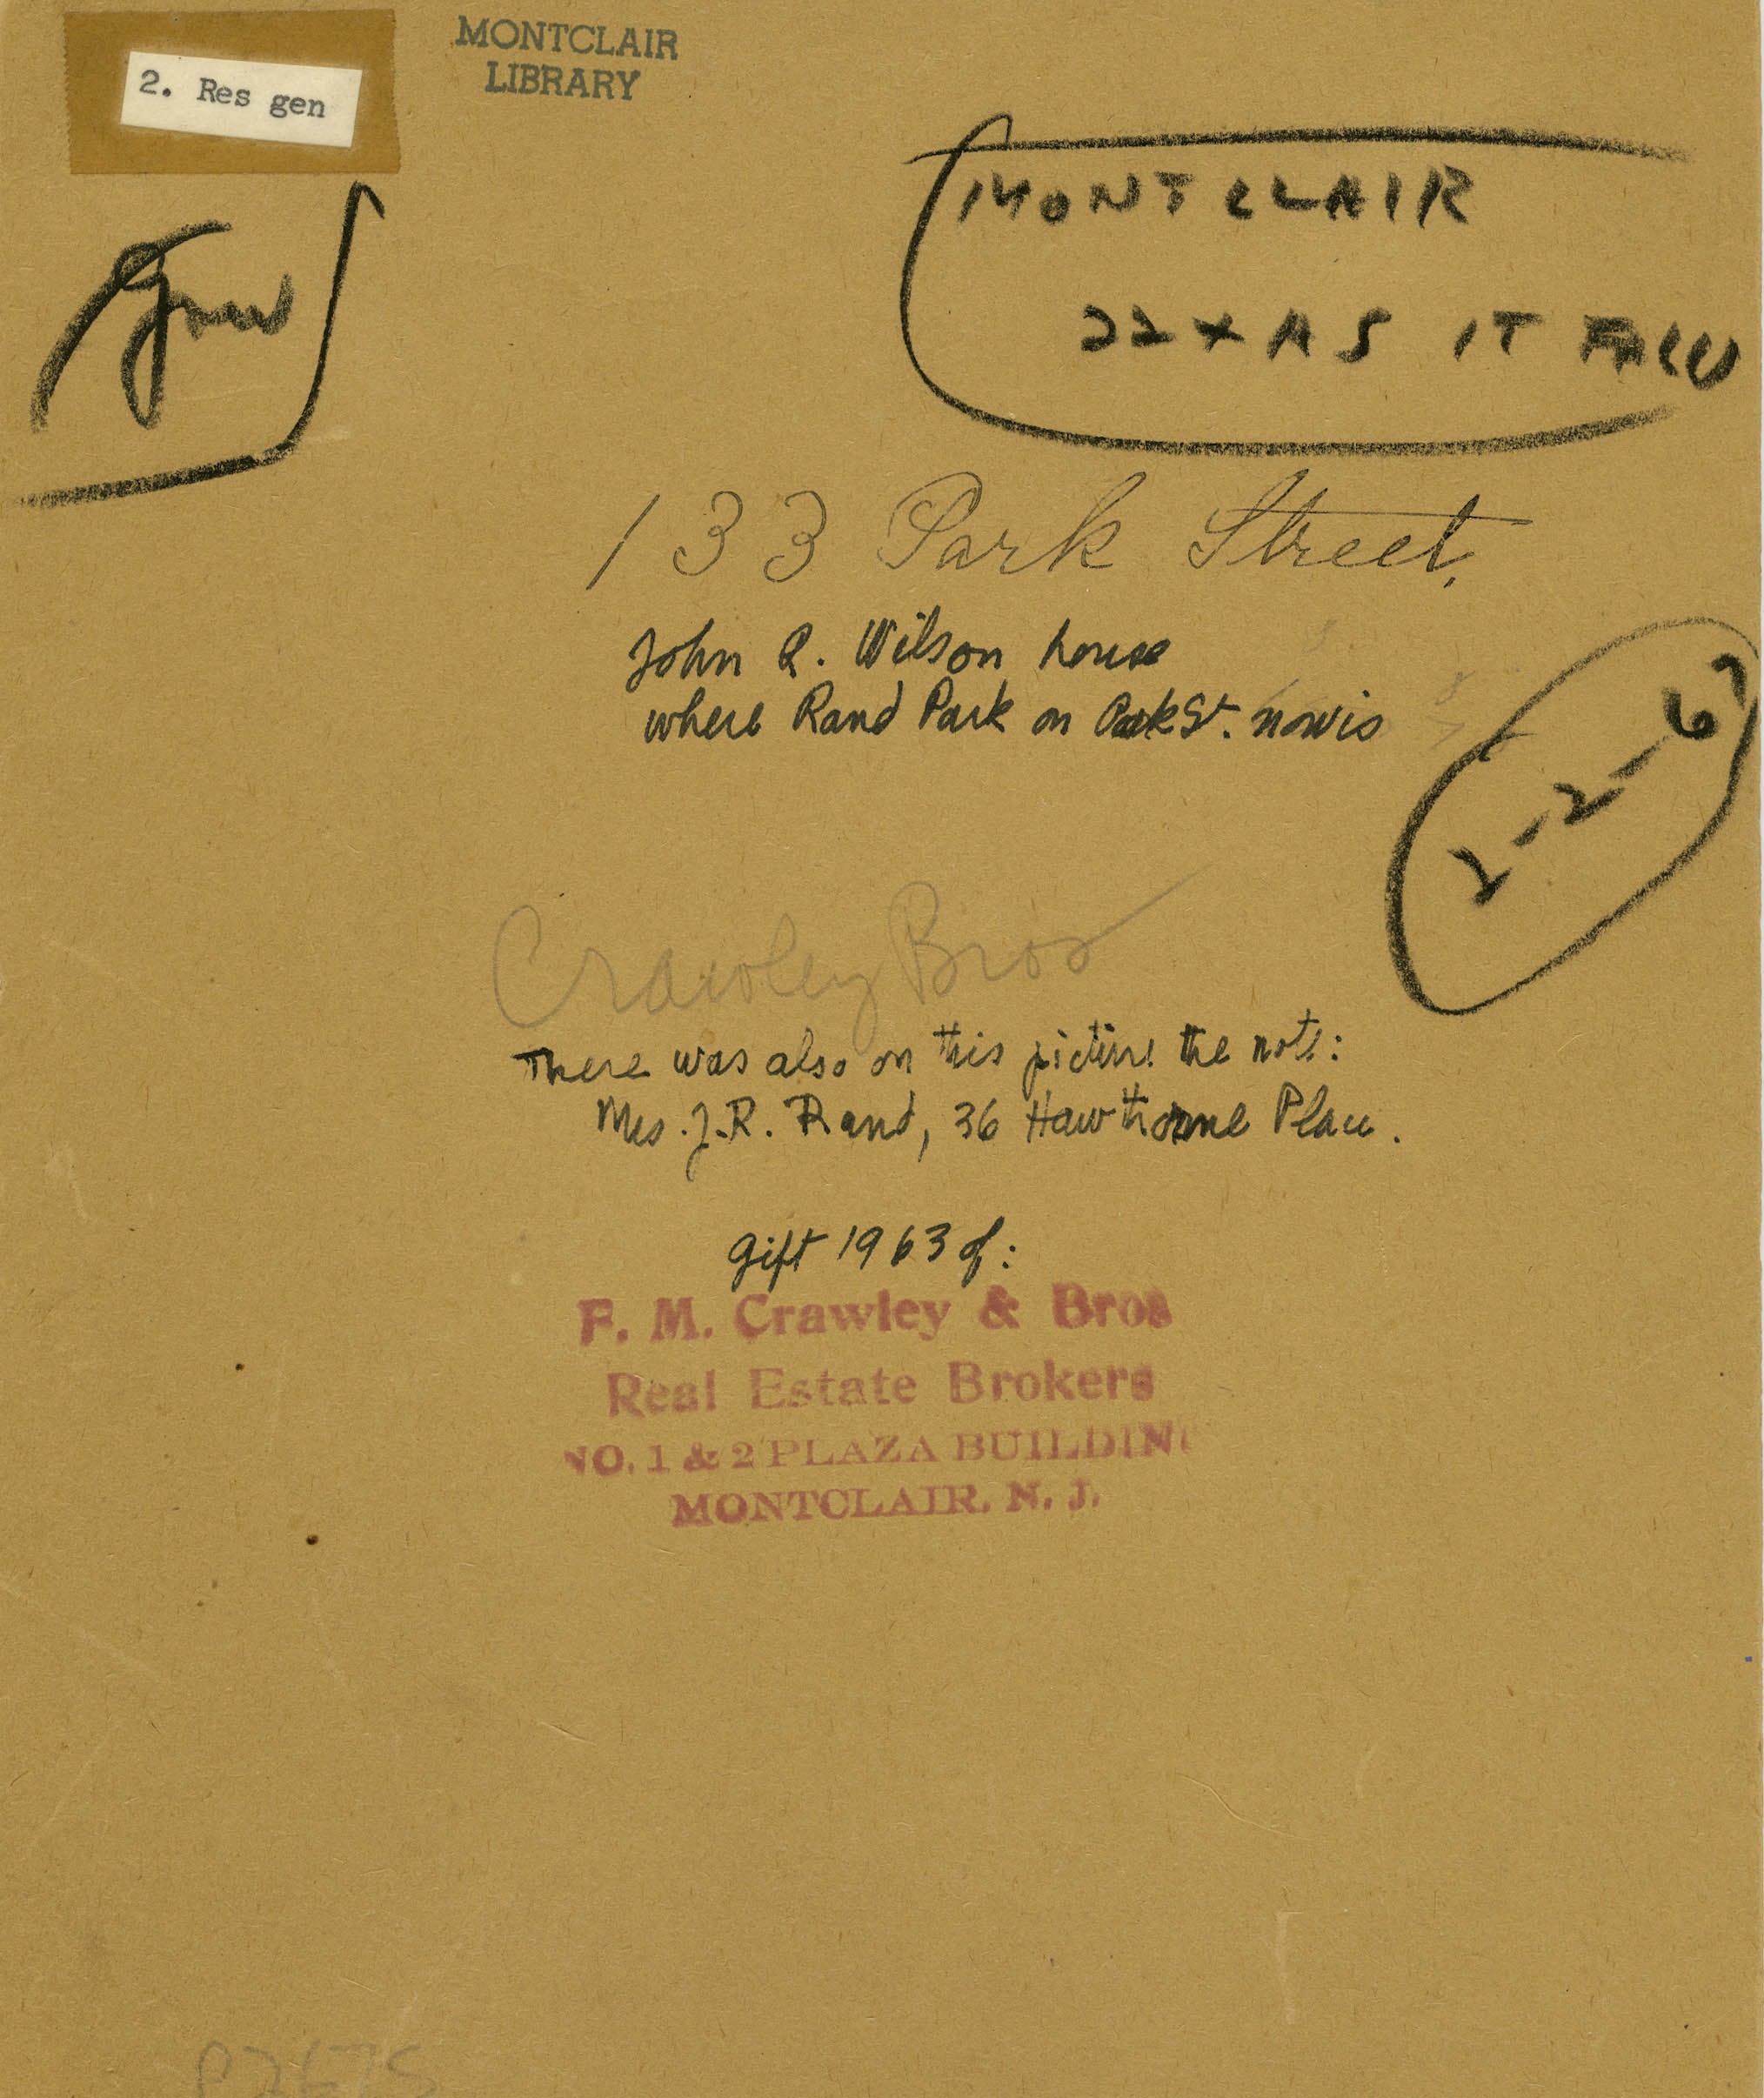 2. Res gen
MONTCLAIR
LIBRARY
MONTCLAIR
22 X AS IT
133 Park Street,
John R. Wilson house
where Rand Park on Park St. now is
2-2-6
Crawley Bros
There was also on this picture the note:
Mrs. J.R. Rand, 36 Hawthorne Place.
gift 1963 of:
F. M. Crawley & Bros
Real Estate Brokers
NO. 1 & 2 PLAZA BUILDING
MONTCLAIR, N. J.